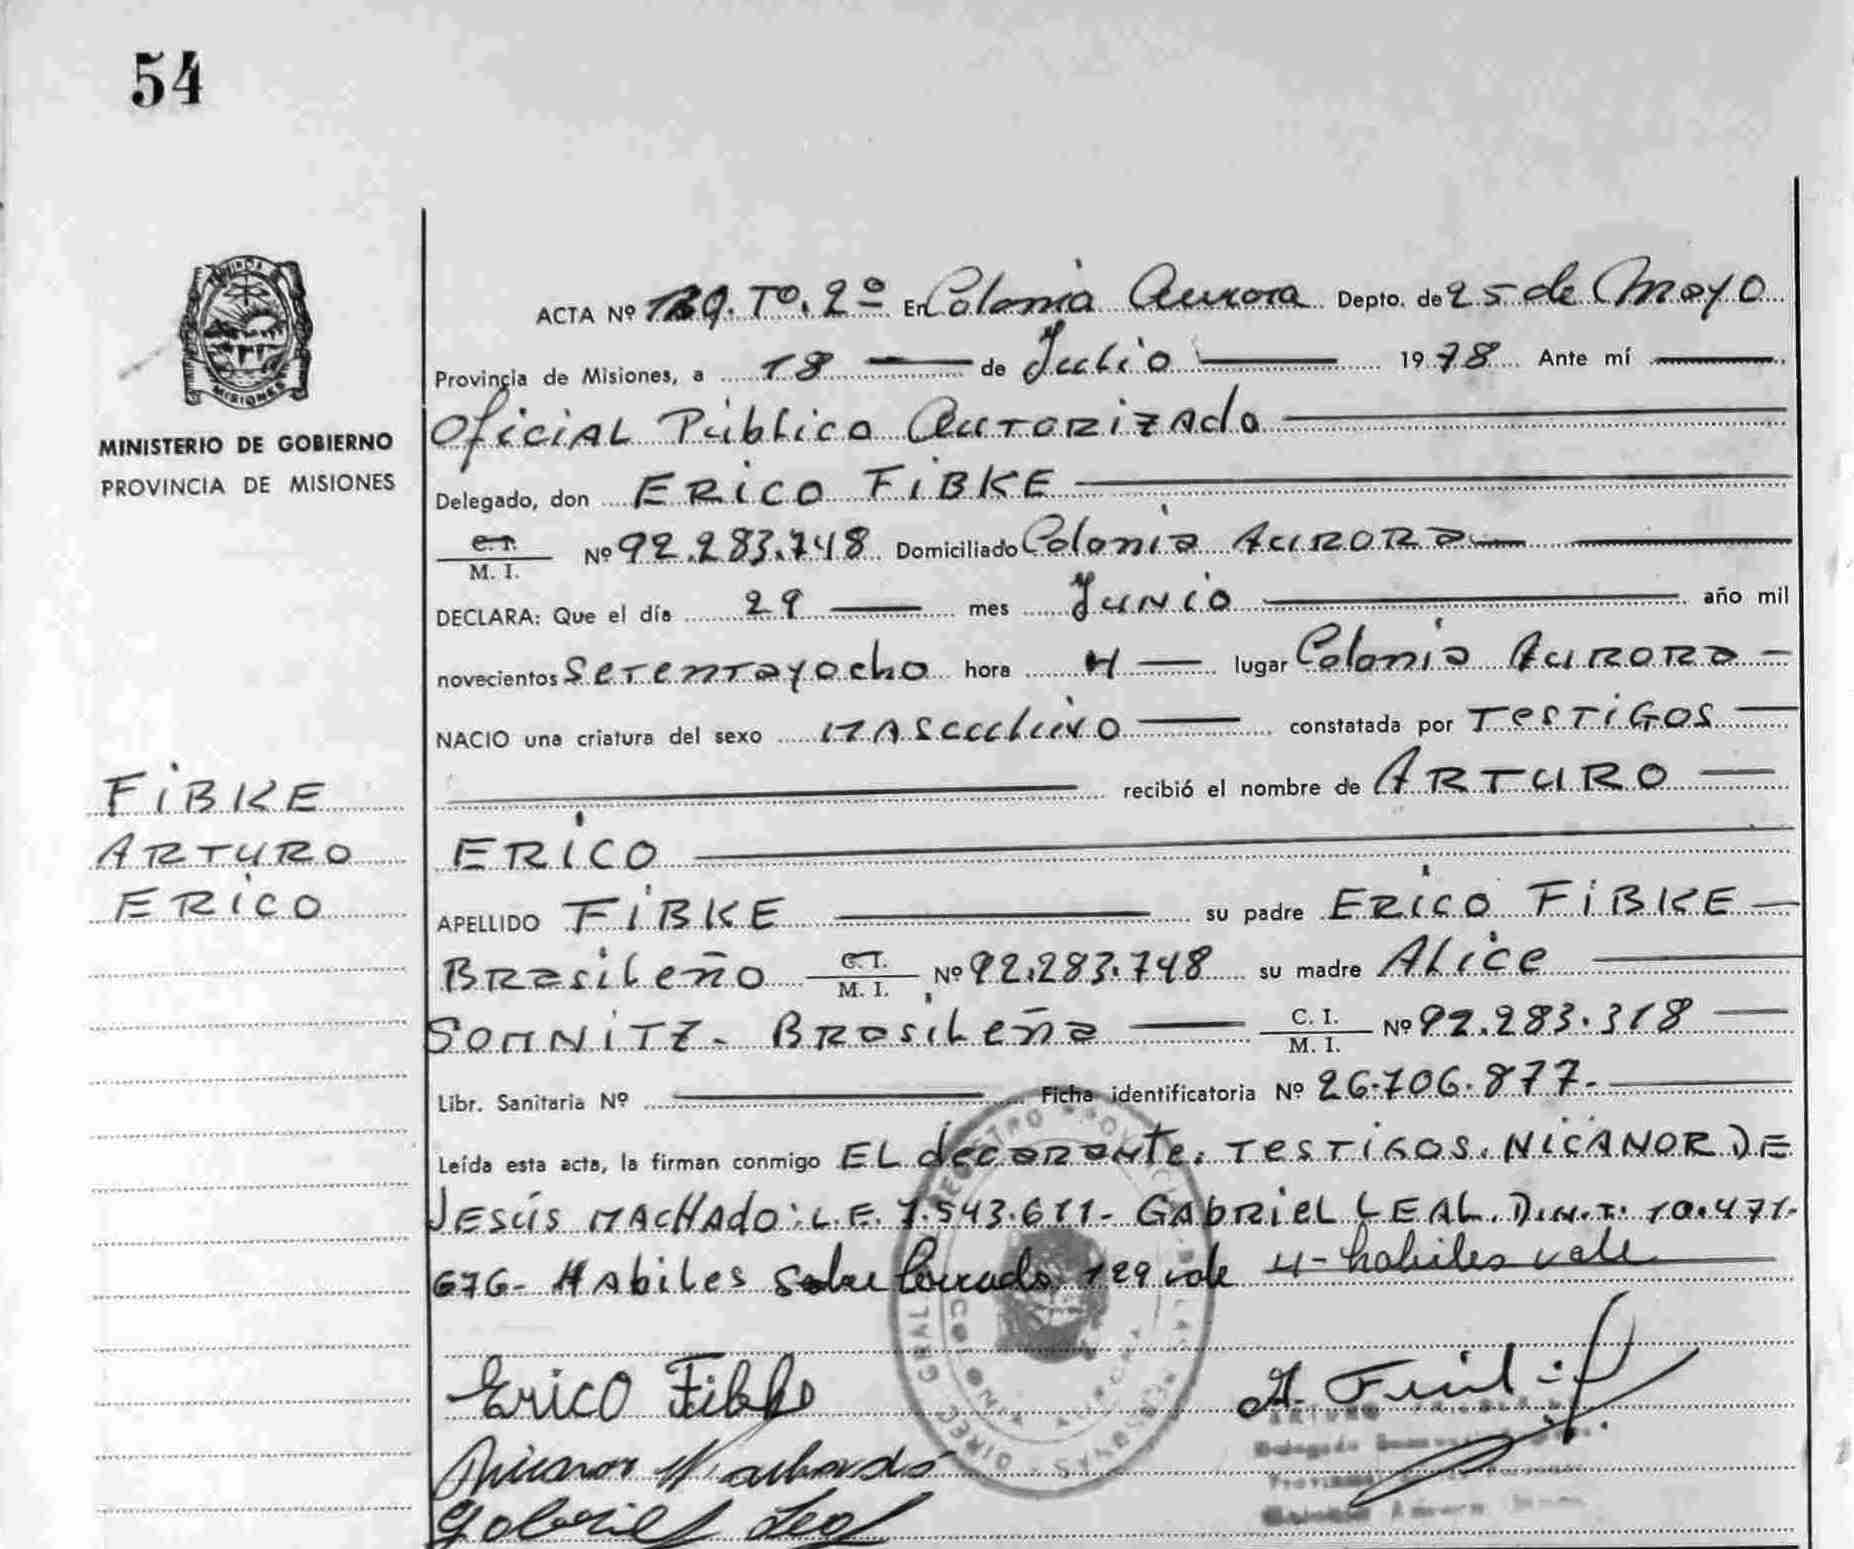 54
MINISTERIO DE GOBIERNO
PROVINCIA DE MISIONES
ACTA Nº 129. Tº. 2º En Colonia Aurora Depto. de 25 de Mayo
Provincia de Misiones, a 18 de Julio 1978 Ante mí
Oficial Público Autorizado
Delegado, don ERICO FIBKE
C.I. M. I. Nº 92.283.748 Domiciliado Colonia Aurora
DECLARA: Que el día 29 mes Junio año mil
novecientos setentayocho hora 4 lugar Colonia Aurora
NACIO una criatura del sexo masculino constatada por testigos
recibió el nombre de ARTURO
ERICO
FIBKE
ARTURO
ERICO
APELLIDO FIBKE su padre ERICO FIBKE
Brasileño C.I. M. I. Nº 92.283.748 su madre Alice
SOMNITZ - Brasileña C. I. M. I. Nº 92.283.318
Libr. Sanitaria Nº Ficha identificatoria Nº 26.706.877.-
Leída esta acta, la firman conmigo El decarante. Testigos. NICANOR DE
JESÚS MACHADO: L.E. 7.543.611- GABRIEL LEAL. D.N.I. 10.471.
676- Habiles sobre borrado 129 vale 4- habiles vale
Erico Fibke
Nicanor Machado
Gabriel Leal
MISIONES
ARTURO
Delegado